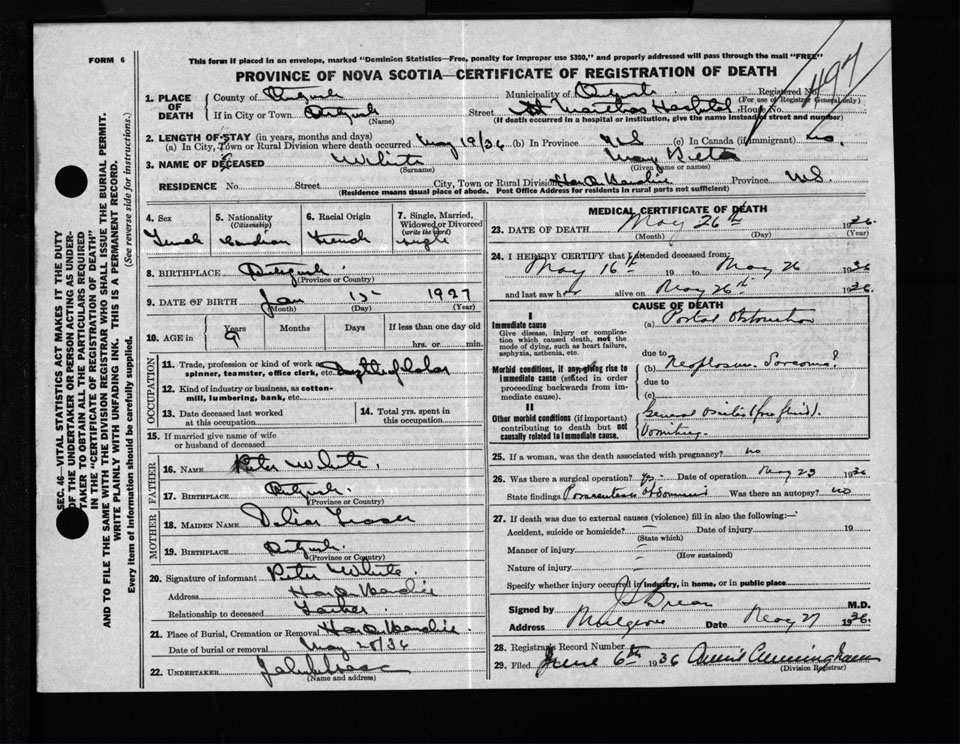 FORM 6
This form if placed in an envelope, marked "Dominion Statistics—Free, penalty for improper use $300," and properly addressed will pass through the mail "FREE"
PROVINCE OF NOVA SCOTIA—CERTIFICATE OF REGISTRATION OF DEATH
Registered No.
(For use of Registrar General only)
1. PLACE OF DEATH
County of
Municipality of
If in City or Town
(Name)
Street St Marthas Hospital House No.
(If death occurred in a hospital or institution, give the name instead of street and number)
2. LENGTH OF STAY (in years, months and days)
(a) In City, Town or Rural Division where death occurred May 19/36 (b) In Province NS (c) In Canada (if immigrant)
3. NAME OF DECEASED White Mary
(Surname) (Given name or names)
RESIDENCE No. Street City, Town or Rural Division Province N.S.
(Residence means usual place of abode. Post Office Address for residents in rural parts not sufficient)
4. Sex
Female
5. Nationality
(Citizenship)
Canadian
6. Racial Origin
French
7. Single, Married, Widowed or Divorced
(write the word)
single
8. BIRTHPLACE
(Province or Country)
9. DATE OF BIRTH Jan 15 1927
(Month) (Day) (Year)
10. AGE in
Years Months Days If less than one day old
9
hrs. or min.
OCCUPATION
11. Trade, profession or kind of work as spinner, teamster, office clerk, etc.
12. Kind of industry or business, as cotton-mill, lumbering, bank, etc.
13. Date deceased last worked at this occupation
14. Total yrs. spent in this occupation
15. If married give name of wife or husband of deceased
FATHER
16. NAME Peter White
17. BIRTHPLACE
(Province or Country)
MOTHER
18. MAIDEN NAME
19. BIRTHPLACE
(Province or Country)
20. Signature of informant Peter White
Address
Relationship to deceased Father
21. Place of Burial, Cremation or Removal
Date of burial or removal May 28/36
22. UNDERTAKER
(Name and address)
MEDICAL CERTIFICATE OF DEATH
23. DATE OF DEATH May 26th 1936.
(Month) (Day) (Year)
24. I HEREBY CERTIFY that I attended deceased from:
May 16th 19 to May 26 1936
and last saw her alive on May 26th 1936.
CAUSE OF DEATH
I
Immediate cause
Give disease, injury or complication which caused death, not the mode of dying, such as heart failure, asphyxia, asthenia, etc.
(a) Portal Obstruction
due to
Morbid conditions, if any, giving rise to immediate cause (stated in order proceeding backwards from immediate cause).
(b) Neoplasm. Sarcoma?
due to
(c)
II
Other morbid conditions (if important) contributing to death but not causally related to immediate cause.
General
Vomiting.
25. If a woman, was the death associated with pregnancy? no
26. Was there a surgical operation? yes Date of operation May 23 1936
State findings Was there an autopsy? no
27. If death was due to external causes (violence) fill in also the following:—
Accident, suicide or homicide? Date of injury 19
(State which)
Manner of injury
(How sustained)
Nature of injury
Specify whether injury occurred in industry, in home, or in public place
Signed by M.D.
Address Mulgrave Date May 27 1936.
28. Registrar's Record Number
29. Filed June 6th 1936 Annie Cunningham
(Division Registrar)
SEC. 46—VITAL STATISTICS ACT MAKES IT THE DUTY OF THE UNDERTAKER OR PERSON ACTING AS UNDERTAKER TO OBTAIN ALL THE PARTICULARS REQUIRED IN THE "CERTIFICATE OF REGISTRATION OF DEATH" AND TO FILE THE SAME WITH THE DIVISION REGISTRAR WHO SHALL ISSUE THE BURIAL PERMIT.
WRITE PLAINLY WITH UNFADING INK. THIS IS A PERMANENT RECORD.
Every item of Information should be carefully supplied. (See reverse side for instructions.)